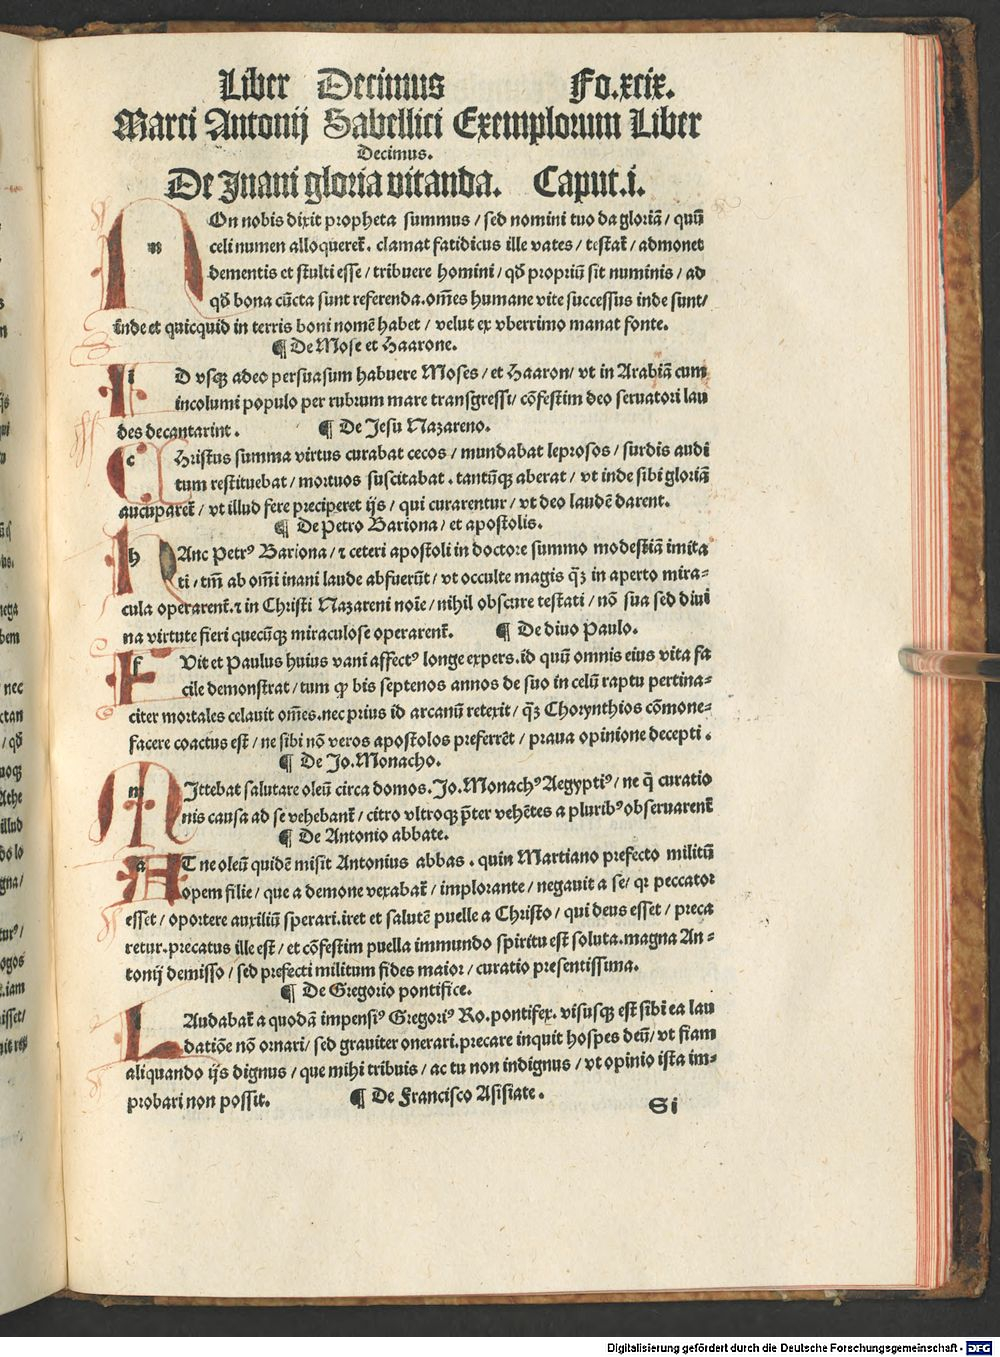 Liber Decimus Fo.xcix.
Marci Antonij Sabellici Exemplorum Liber
Decimus.
De Inani gloria vitanda. Caput.i.
n On nobis dixit propheta summus / sed nomini tuo da gloriā / quū
celi numen alloqueret᷑. clamat fatidicus ille vates / testat᷑ / admonet
dementis et stulti esse / tribuere homini / qđ propriū sit numinis / ad
qđ bona cūcta sunt referenda. om̄es humane vite successus inde sunt /
īnde et quicquid in terris boni nomē habet / velut ex vberrimo manat fonte.
¶ De Mose et Haarone.
i D vsqꝫ adeo persuasum habuere Moses / et Haaron / vt in Arabiā cum
incolumi populo per rubrum mare transgressi / cōfestim deo seruatori lau
des decantarint. ¶ De Jesu Nazareno.
c Hristus summa virtus curabat cecos / mundabat leprosos / surdis audi
tum restituebat / mortuos suscitabat. tantūqꝫ aberat / vt inde sibi gloriā
aucuparet᷑ / vt illud fere preciperet ijs / qui curarentur / vt deo laudē darent.
¶ De Petro Bariona / et apostolis.
h Anc Petrꝰ Bariona / ⁊ ceteri apostoli in doctore summo modestiā imita
ti / tm̄ ab om̄i inani laude abfuerūt / vt occulte magis q̄ꝫ in aperto mira=
cula operarent᷑. ⁊ in Christi Nazareni noīe / nihil obscure testati / nō sua sed diui
na virtute fieri quecūqꝫ miraculose operarent᷑. ¶ De diuo Paulo.
f Vit et Paulus huius vani affectꝰ longe expers. id quū omnis eius vita fa
cile demonstrat / tum ꝙ bis septenos annos de suo in celū raptu pertina=
citer mortales celauit om̄es. nec prius id arcanū retexit / q̄ꝫ Chorynthios cōmone=
facere coactus est / ne sibi nō veros apostolos preferrēt / praua opinione decepti.
¶ De Jo. Monacho.
m Ittebat salutare oleū circa domos. Jo. Monachꝰ Aegyptiꝰ / ne q̄ curatio
nis causa ad se vehebant᷑ / citro vltroqꝫ p̄ter vehētes a pluribꝰ obseruarent᷑
¶ De Antonio abbate.
a T ne oleū quidē misit Antonius abbas. quin Martiano prefecto militū
opem filie / que a demone vexabat᷑ / implorante / negauit a se / qꝛ peccator
esset / oportere auxiliū sperari. iret et salutē puelle a Christo / qui deus esset / preca
retur. precatus ille est / et cōfestim puella immundo spiritu est soluta. magna An=
tonij demisso / sed prefecti militum fides maior / curatio presentissima.
¶ De Gregorio pontifice.
l Audabat᷑ a quodā impensiꝰ Gregoriꝰ Ro. pontifex. visusqꝫ est sibi ea lau
datiōe nō ornari / sed grauiter onerari. precare inquit hospes deū / vt fiam
aliquando ijs dignus / que mihi tribuis / ac tu non indignus / vt opinio ista im=
probari non possit. ¶ De Francisco Asisiate.
Si
Digitalisierung gefördert durch die Deutsche Forschungsgemeinschaft - DFG